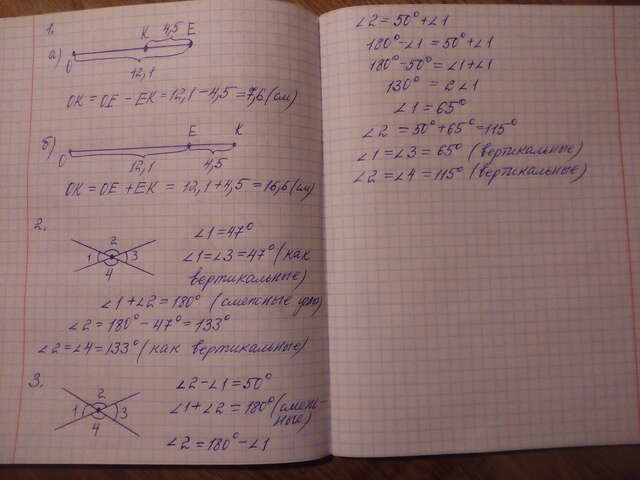 1.
а)
O K 4,5 E
12,1
OK = OE - EK = 12,1 - 4,5 = 7,6 (см)
б)
O E K
12,1 4,5
OK = OE + EK = 12,1 + 4,5 = 16,6 (см)
2.
1 2 3 4
∠1 = 47°
∠1 = ∠3 = 47° (как
вертикальные)
∠1 + ∠2 = 180° (смежные углы)
∠2 = 180° - 47° = 133°
∠2 = ∠4 = 133° (как вертикальные)
3.
1 2 3 4
∠2 - ∠1 = 50°
∠1 + ∠2 = 180° (смеж-
ные)
∠2 = 180° - ∠1
∠2 = 50° + ∠1
180° - ∠1 = 50° + ∠1
180° - 50° = ∠1 + ∠1
130° = 2∠1
∠1 = 65°
∠2 = 50° + 65° = 115°
∠1 = ∠3 = 65° (вертикальные)
∠2 = ∠4 = 115° (вертикальные)